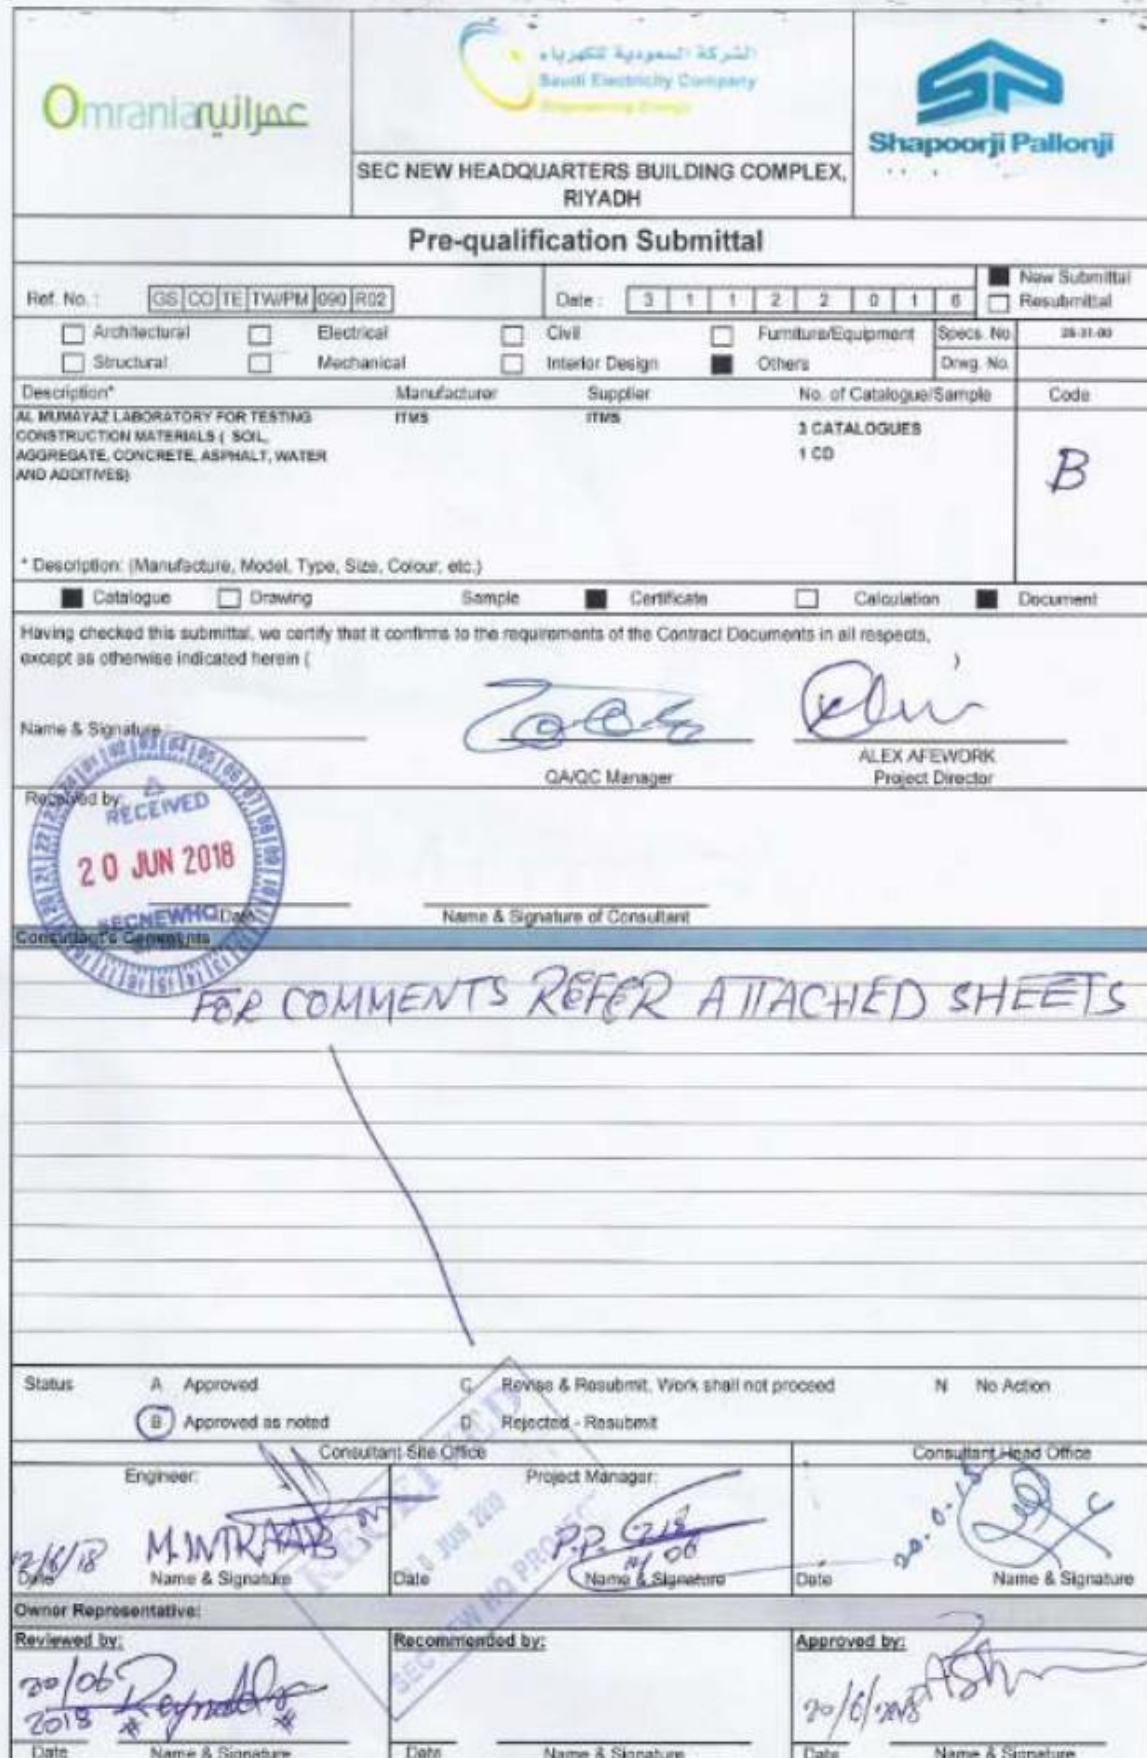 Omrania عمرانية
الشركة السعودية للكهرباء
Saudi Electricity Company
Shapoorji Pallonji
SEC NEW HEADQUARTERS BUILDING COMPLEX,
RIYADH
Pre-qualification Submittal
Ref. No. : GS CO TE TW/PM 090 R02 Date : 3 1 1 2 2 0 1 6 New Submittal
Resubmittal
Architectural Electrical Civil Furniture/Equipment Specs. No
Structural Mechanical Interior Design Others Drwg. No.
Description* Manufacturer Supplier No. of Catalogue/Sample Code
AL MUMAYAZ LABORATORY FOR TESTING ITMS ITMS
CONSTRUCTION MATERIALS ( SOIL, 3 CATALOGUES
AGGREGATE, CONCRETE, ASPHALT, WATER 1 CD B
AND ADDITIVES)
* Description: (Manufacture, Model, Type, Size, Colour, etc.)
Catalogue Drawing Sample Certificate Calculation Document
Having checked this submittal, we certify that it confirms to the requirements of the Contract Documents in all respects,
except as otherwise indicated herein ( )
Name & Signature :
ALEX AFEWORK
QA/QC Manager Project Director
Received by:
RECEIVED
20 JUN 2018
SECNEWHQ
Date Name & Signature of Consultant
Consultant's Comments
FOR COMMENTS REFER ATTACHED SHEETS
Status A Approved C Revise & Resubmit, Work shall not proceed N No Action
B Approved as noted D Rejected - Resubmit
Consultant Site Office Consultant Head Office
Engineer: Project Manager:
12/6/18 P.P.
Date Name & Signature Date Name & Signature Date Name & Signature
RECEIVED
SEC NEW HQ PROJECT
Owner Representative:
Reviewed by: Recommended by: Approved by:
20/06
2018 20/6/2018
Date Name & Signature Date Name & Signature Date Name & Signature